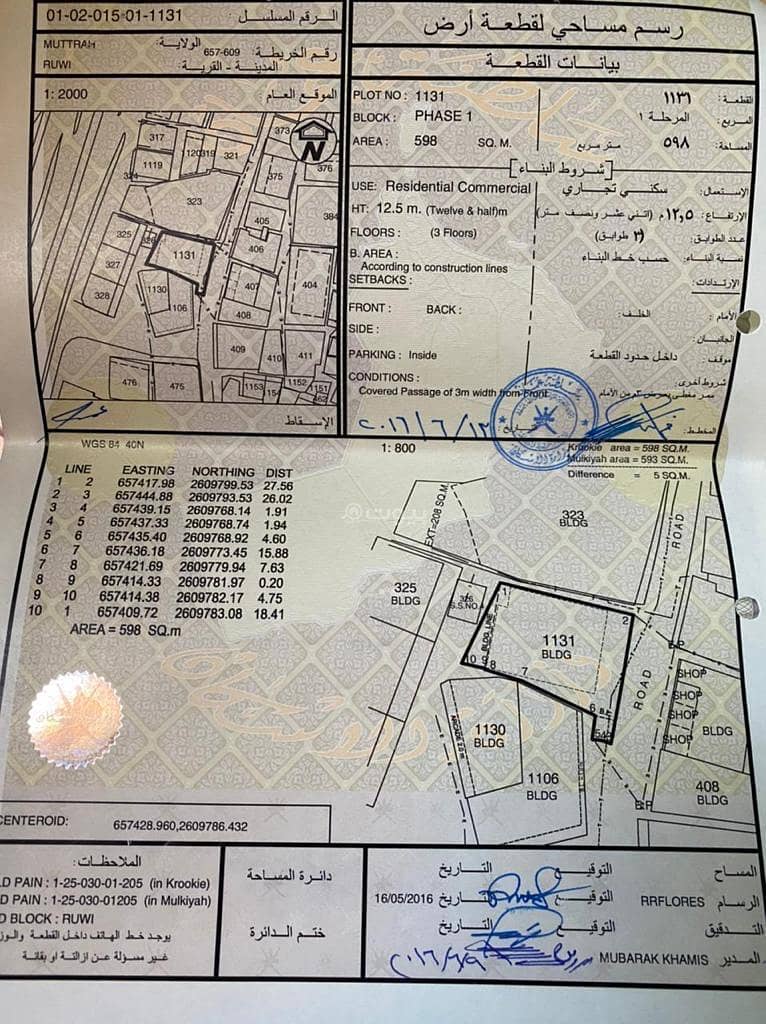 الرقم المسلسل : 01-02-015-01-1131
MUTTRAH الولاية:
رقم الخريطة : 657-609
RUWI المدينة - القرية :
الموقع العام 1: 2000
373
317
1119
120
319
321
324
323
375
376
384
325
326
327
328
1131
405
406
1130
106
407
404
408
409
410
411
476
475
1153
154
1152
1151
N
الإسقاط
رسم مساحي لقطعة أرض
بيانات القطعة
PLOT NO : 1131 القطعة : ١١٣١
BLOCK : PHASE 1 المربع: المرحلة ١
AREA : 598 SQ. M. المساحة: ٥٩٨ متر مربع
شروط البناء
USE: Residential Commercial الإستعمال: سكني تجاري
HT: 12.5 m. (Twelve & half)m الإرتفاع: ١٢,٥ م (اثني عشر ونصف متر)
FLOORS : (3 Floors) عدد الطوابق: (٣ طوابق)
B. AREA : نسبة البناء: حسب خط البناء
According to construction lines
SETBACKS : الإرتدادات:
FRONT : BACK : الخلف: الأمام:
SIDE : الجانبان:
PARKING : Inside موقف: داخل حدود القطعة
CONDITIONS : شروط أخرى:
Covered Passage of 3m width from Front
المخطط:
WGS 84 40N
1: 800
Krookie area = 598 SQ.M.
Mulkiyah area = 593 SQ.M.
Difference = 5 SQ.M.
LINE EASTING NORTHING DIST
1 2 657417.98 2609799.53 27.56
2 3 657444.88 2609793.53 26.02
3 4 657439.15 2609768.14 1.91
4 5 657437.33 2609768.74 1.94
5 6 657435.40 2609768.92 4.60
6 7 657436.18 2609773.45 15.88
7 8 657421.69 2609779.94 7.63
8 9 657414.33 2609781.97 0.20
9 10 657414.38 2609782.17 4.75
10 1 657409.72 2609783.08 18.41
AREA = 598 SQ.m
EXT=208 SQ.M.
323
BLDG
ROAD
325
BLDG
326
S.S.NO.
1
2
BLDG LINE
1131
BLDG
10 9 8
7
6
E.P
ROAD
SHOP
SHOP
SHOP
SHOP
BLDG
1130
BLDG
1106
BLDG
408
BLDG
E.P
بيوت
CENTEROID: 657428.960,2609786.432
الملاحظات:
LD PAIN : 1-25-030-01-205 (in Krookie)
D PAIN : 1-25-030-01205 (in Mulkiyah)
D BLOCK : RUWI
يوجد خط الهاتف داخل القطعة والوز
غير مسؤلة عن ازالتة او بقائة
دائرة المساحة
ختم الدائرة
المساح التوقيع التاريخ
الرسام RRFLORES التوقيع التاريخ 16/05/2016
التدقيق التوقيع التاريخ
المدير MUBARAK KHAMIS